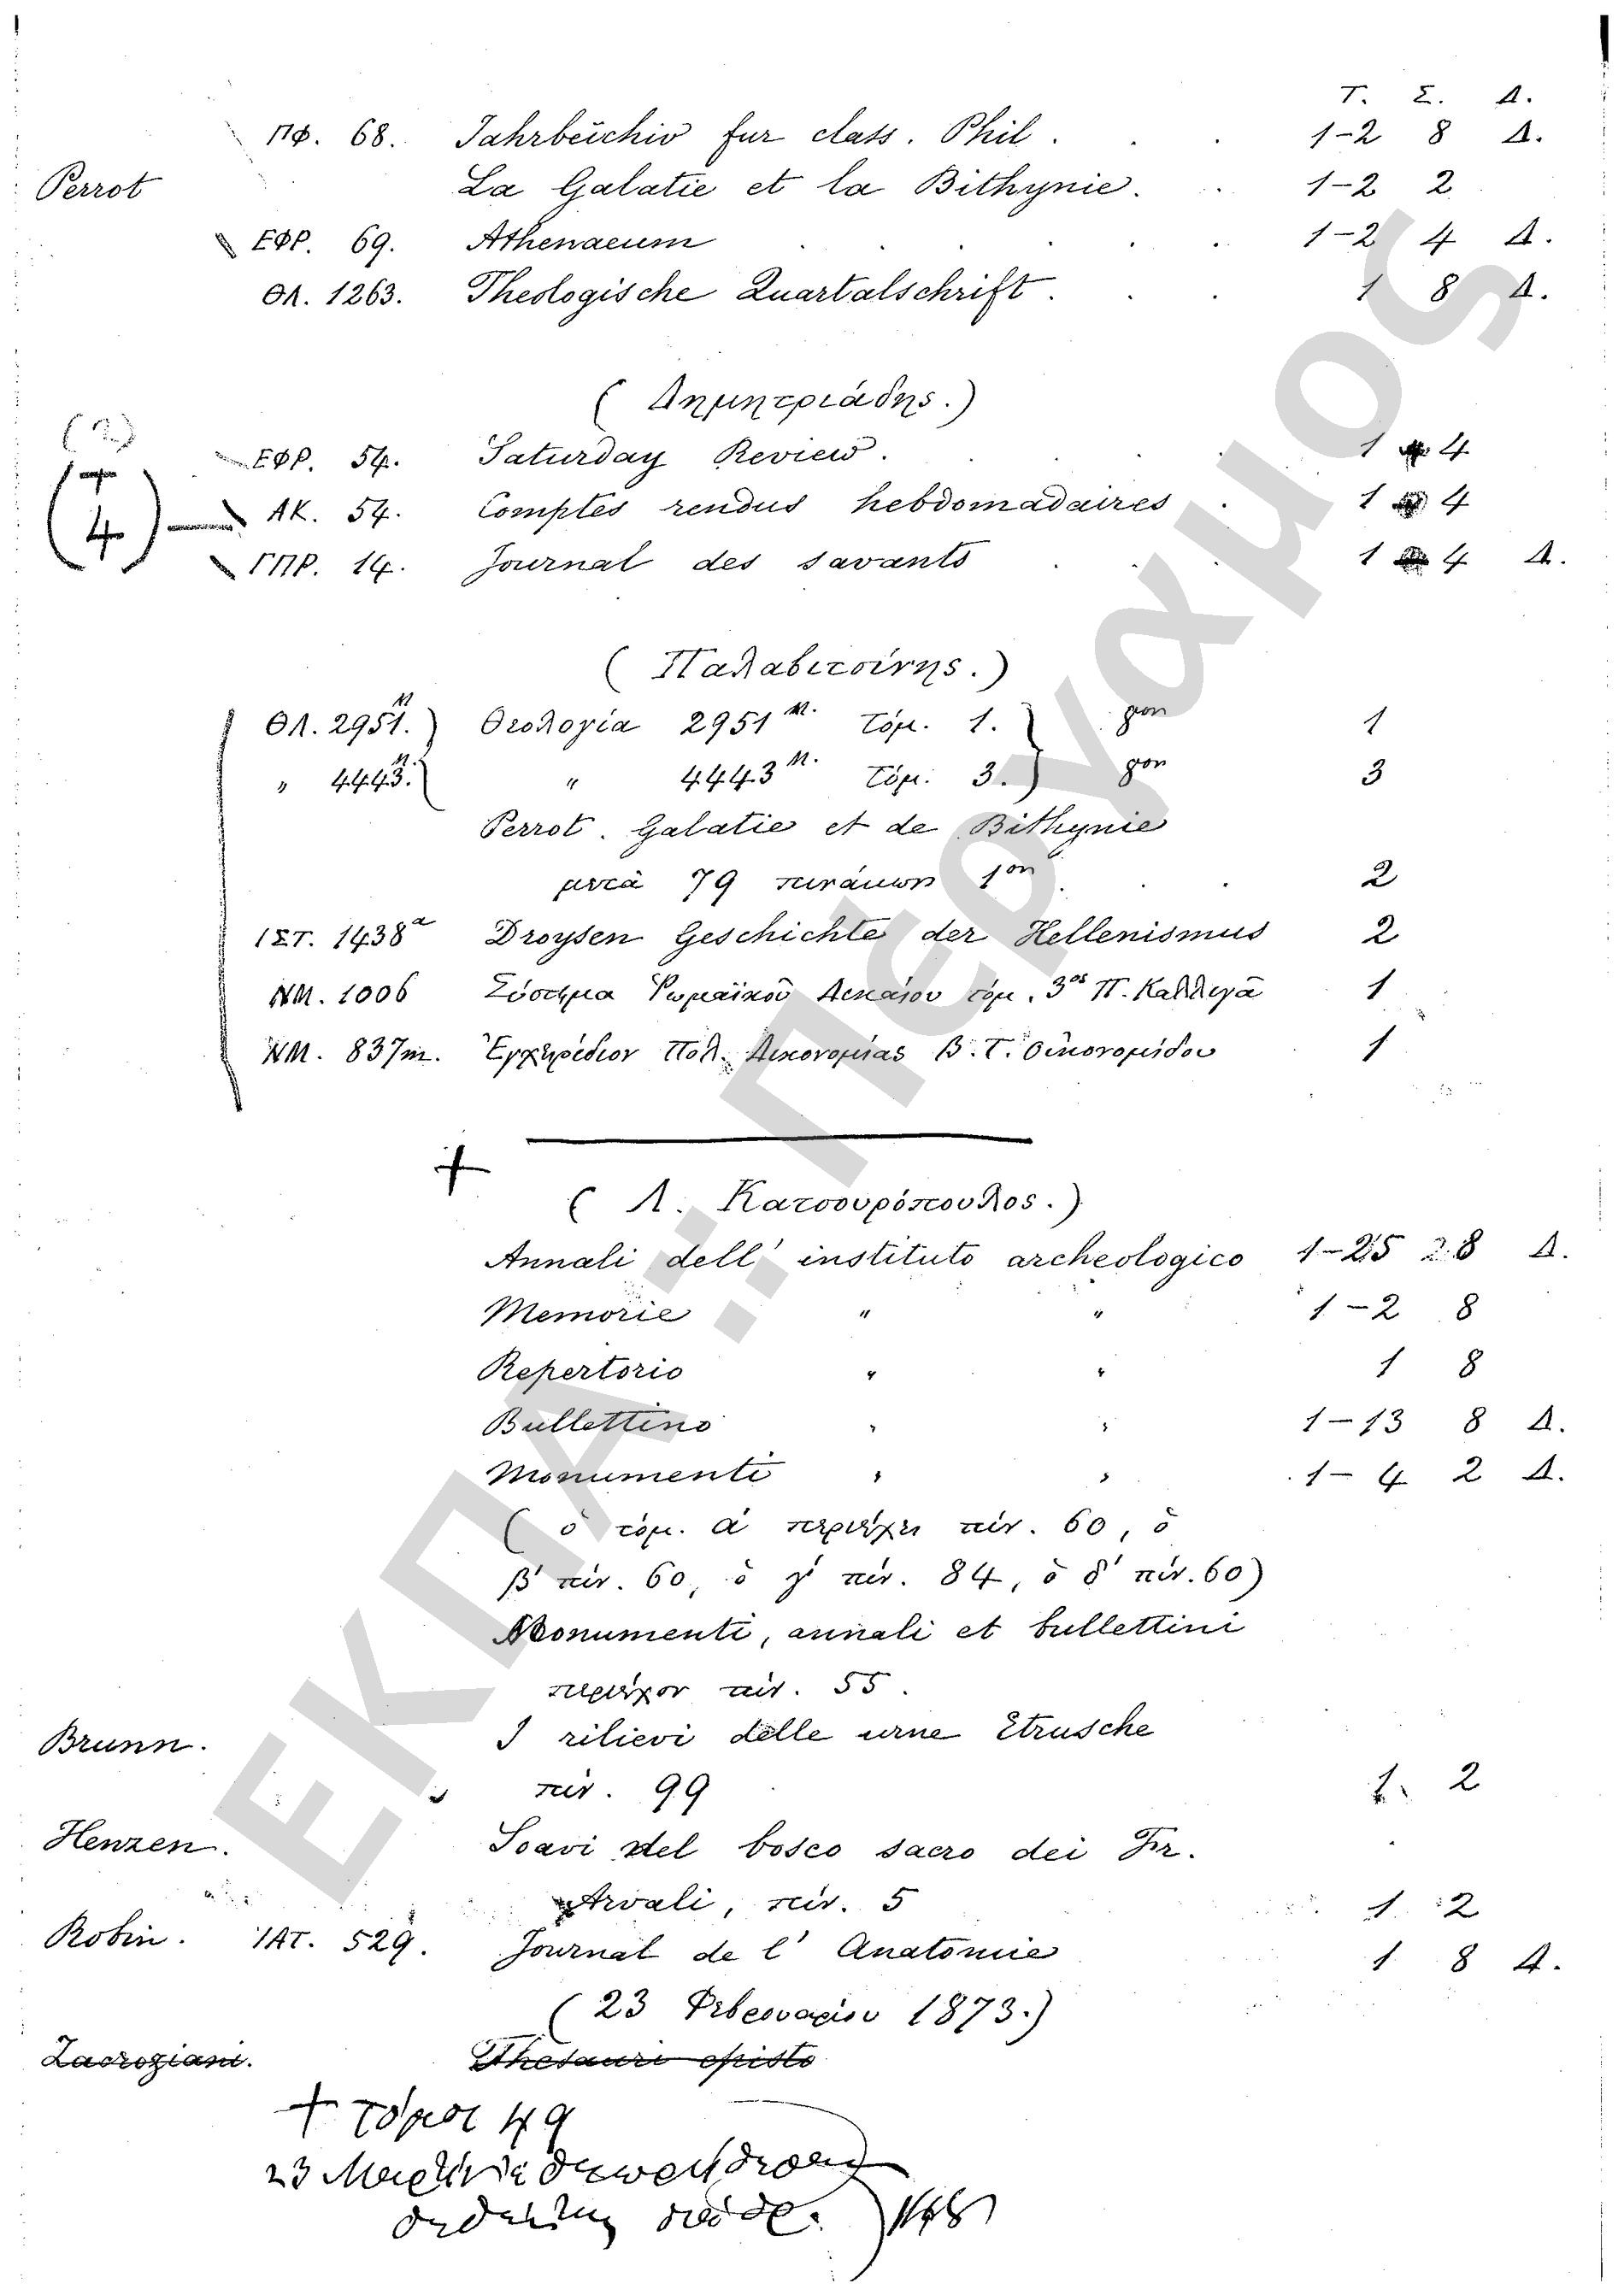 Τ. Σ. Δ.
ΠΦ. 68. Jahrbüchiv fur class. Phil. . . 1-2 8 Δ.
Perrot La Galatie et la Bithynie. . 1-2 2
ΕΦΡ. 69. Athenaeum . . . . . 1-2 4 Δ.
ΘΛ. 1263. Theologische Quartalschrift . . . 1 8 Δ.
(Δημητριάδης.)
ΕΦΡ. 54. Saturday Review. 1 4
(4) ΑΚ. 54. Comptes rendus hebdomadaires . 1 4
ΓΠΡ. 14. Journal des savants . . . 1 4 Δ.
(Παλαβιτσίνης.)
ΘΛ. 2951.Μ) Θεολογία 2951 Μ. Τόμ. 1.} 1
" 4443.Μ) " 4443 Μ. Τόμ. 3.} 3
Perrot. Galatie et de Bithynie
μετά 79 πινάκων 1ον . . . 2
ΙΣΤ. 1438α Droysen Geschichte der Hellenismus 2
ΝΜ. 1006 Σύστημα Ρωμαϊκοῦ Δικαίου τόμ. 3ος Π. Καλλιγᾶ 1
ΝΜ. 837m. Ἐγχειρίδιον Πολ. Δικονομίας Β. Τ. Οἰκονομίδου 1
+
(Λ. Κατσουρόπουλος.)
Annali dell' instituto archeologico 1-25 8 Δ.
Memorie " " 1-2 8
Repertorio " " 1 8
Bullettino " " 1-13 8 Δ.
Monumenti " " 1-4 2 Δ.
(ὁ τόμ. α' περιέχει πίν. 60, ὁ
β' πίν. 60, ὁ γ' πίν. 84, ὁ δ' πίν. 60)
Monumenti, annali et bullettini
περιέχον πίν. 55.
Brunn. I rilievi delle urne Etrusche
πίν. 99 1. 2
Henzen. Scavi del bosco sacro dei Fr.
Arvali, πίν. 5 1 2
Robin. ΙΑΤ. 529. Journal de l' Anatomie 1 8 Δ.
(23 Φεβρουαρίου 1873.)
+ τόμοι 49
23
ΕΚΠΑ :: Πέργαμος